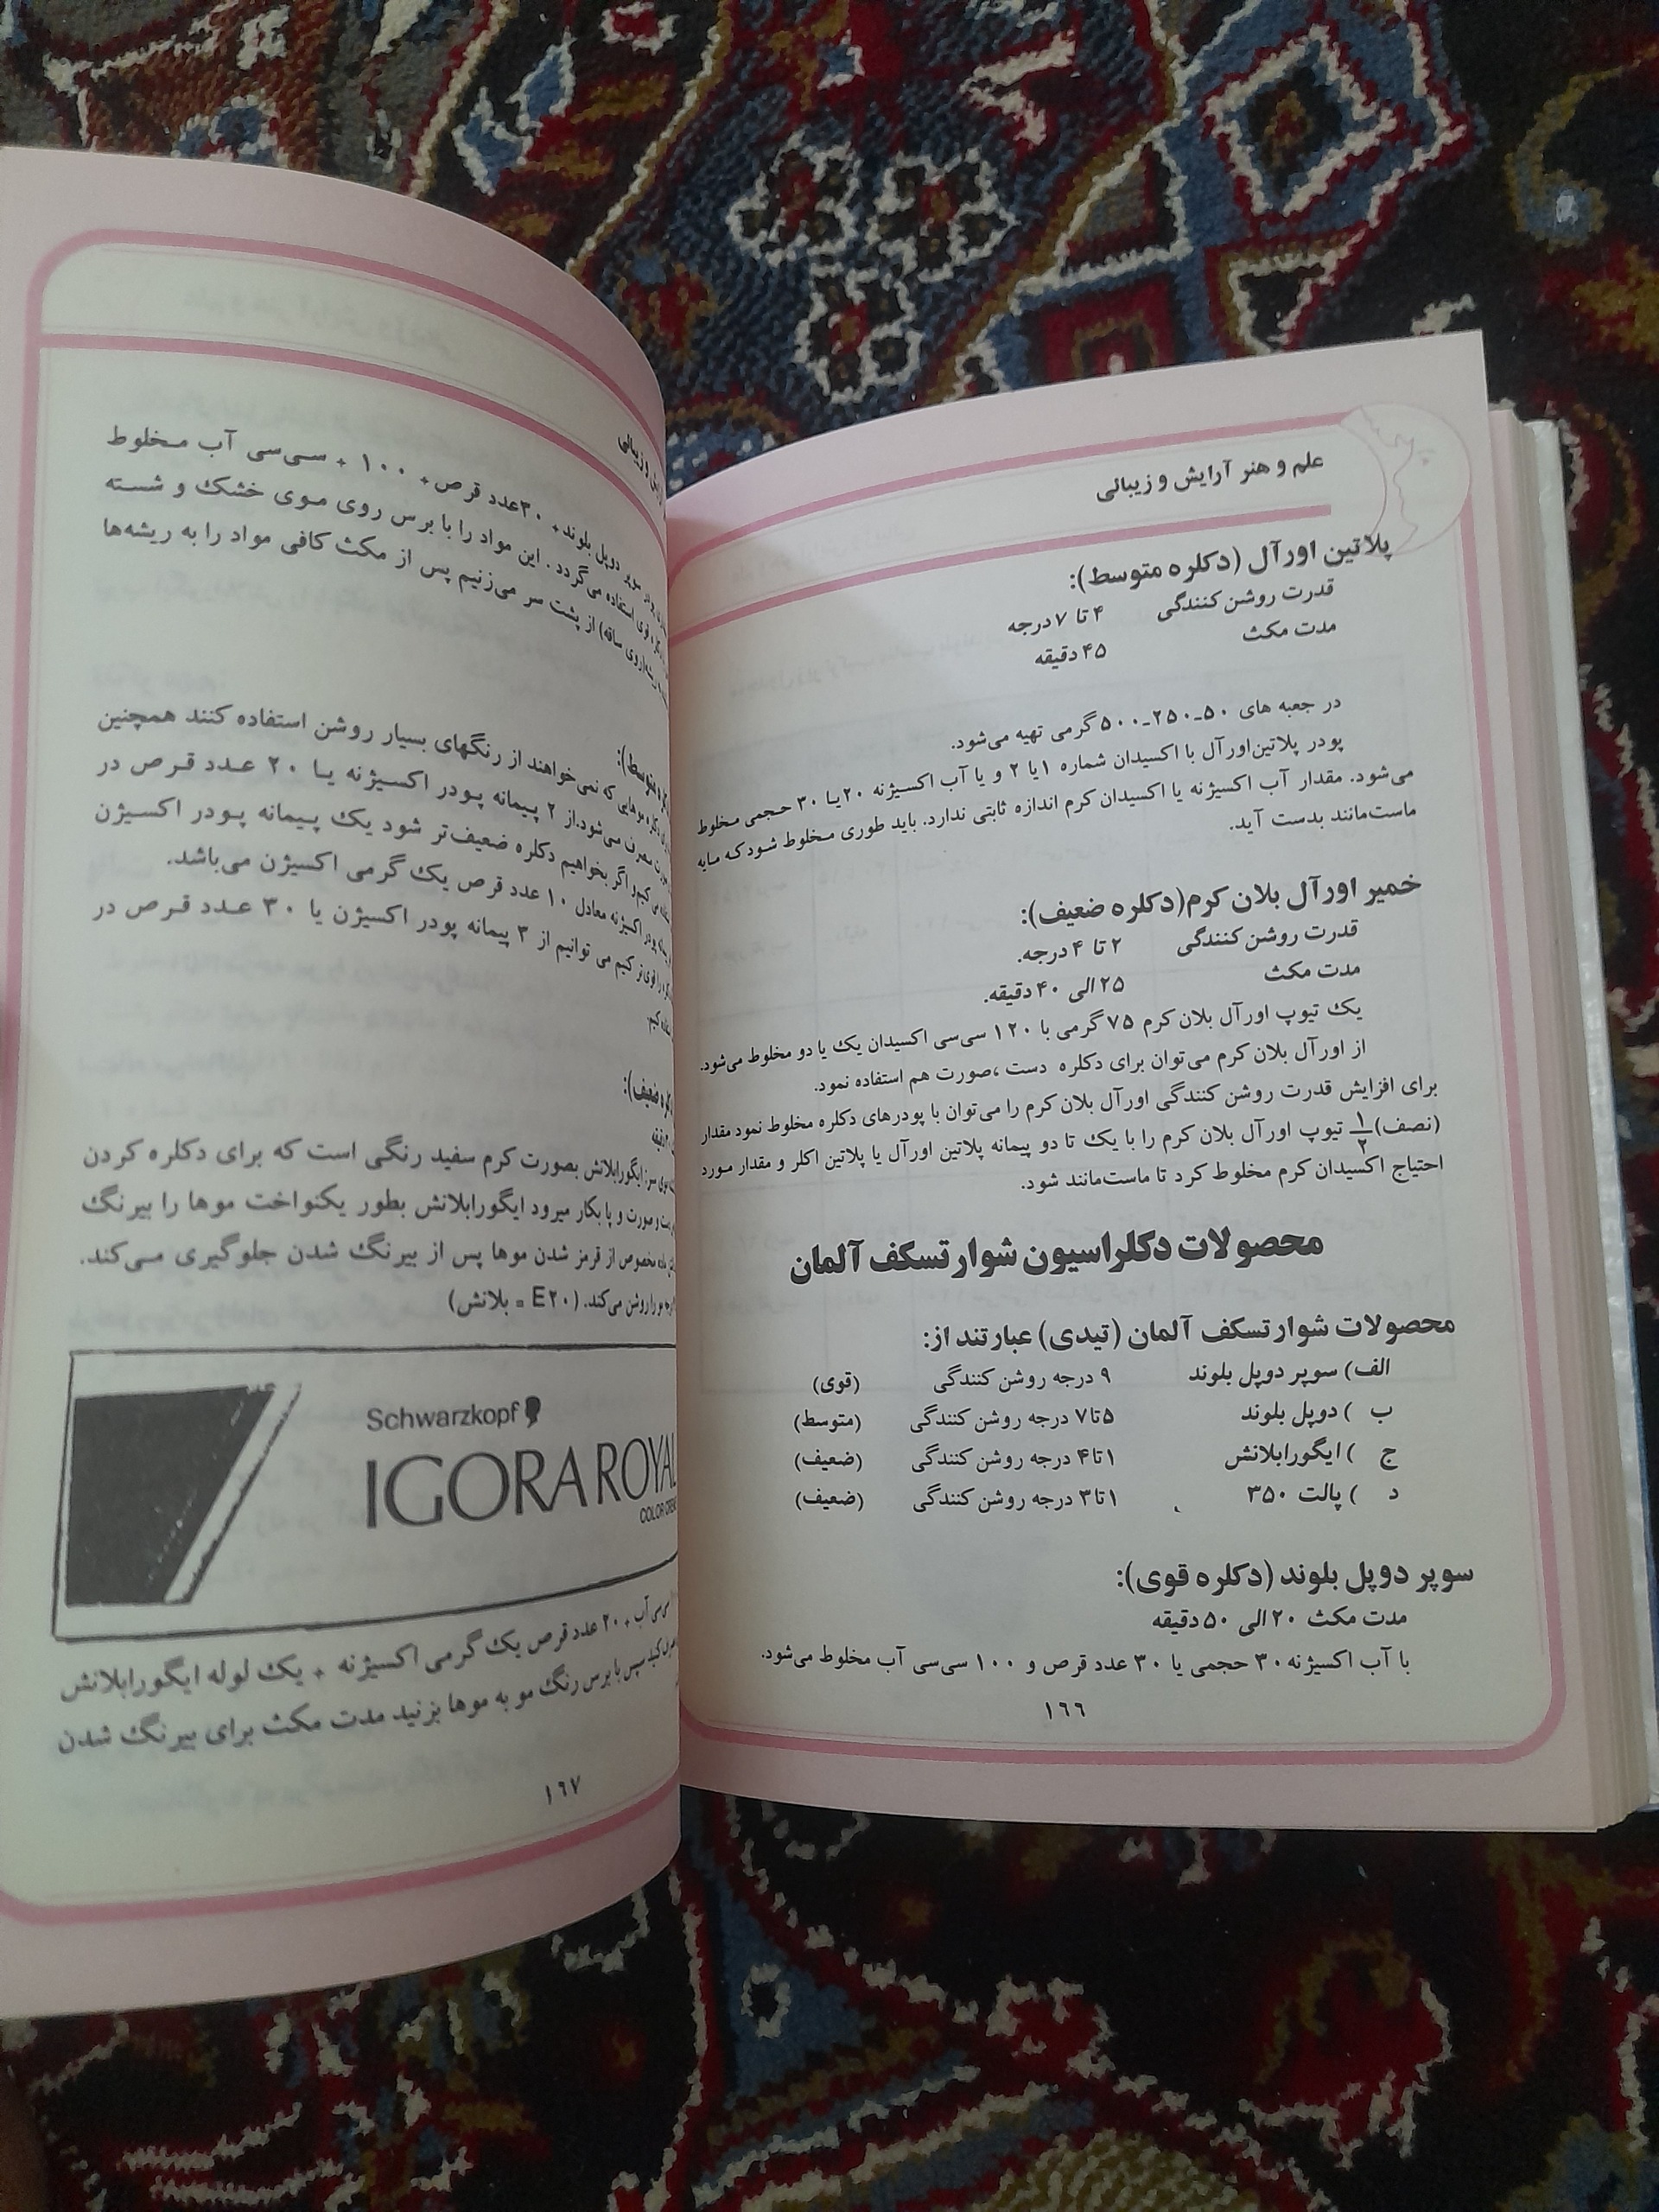 علم و هنر آرایش و زیبائی
پلاتین اورآل (دکلره متوسط):
قدرت روشن‌کنندگی ۴ تا ۷ درجه
مدت مکث ۴۵ دقیقه
در جعبه های ۵۰-۲۵۰-۵۰۰ گرمی تهیه می‌شود.
پودر پلاتین‌اورآل با اکسیدان شماره ۱ یا ۲ و یا آب اکسیژنه ۲۰ یا ۳۰ حجمی مخلوط
می‌شود. مقدار آب اکسیژنه یا اکسیدان کرم اندازه ثابتی ندارد. باید طوری مخلوط شود که مایه
ماست‌مانند بدست آید.
خمیر اورآل بلان کرم(دکلره ضعیف):
قدرت روشن‌کنندگی ۲ تا ۴ درجه.
مدت مکث ۲۵ الی ۴۰ دقیقه.
یک تیوپ اورآل بلان کرم ۷۵ گرمی با ۱۲۰ سی‌سی اکسیدان یک یا دو مخلوط می‌شود.
از اورآل بلان کرم می‌توان برای دکلره دست ،صورت هم استفاده نمود.
برای افزایش قدرت روشن کنندگی اورآل بلان کرم را می‌توان با پودرهای دکلره مخلوط نمود مقدار
(نصف) ۱/۲ تیوپ اورآل بلان کرم را با یک تا دو پیمانه پلاتین اورآل یا پلاتین اکلر و مقدار مورد
احتیاج اکسیدان کرم مخلوط کرد تا ماست‌مانند شود.
محصولات دکلراسیون شوارتسکف آلمان
محصولات شوارتسکف آلمان (تیدی) عبارتند از:
الف) سوپر دوپل بلوند ۹ درجه روشن کنندگی (قوی)
ب ) دوپل بلوند ۵تا۷ درجه روشن کنندگی (متوسط)
ج ) ایگورابلانش ۱تا۴ درجه روشن کنندگی (ضعیف)
د ) پالت ۳۵۰ ۱تا۳ درجه روشن کنندگی (ضعیف)
سوپر دوپل بلوند (دکلره قوی):
مدت مکث ۲۰ الی ۵۰ دقیقه
با آب اکسیژنه ۳۰ حجمی یا ۳۰ عدد قرص و ۱۰۰ سی‌سی آب مخلوط می‌شود.
۱۶۶
و زیبائی
سوپر دوپل بلوند + ۳۰عدد قرص + ۱۰۰ + سی‌سی آب مخلوط
قوی استفاده می‌گردد. این مواد را با برس روی موی خشک و شسته
(روی ساقه) از پشت سر می‌زنیم پس از مکث کافی مواد را به ریشه‌ها
متوسط):
دکلره موهایی که نمی‌خواهند از رنگهای بسیار روشن استفاده کنند همچنین
مصرف می‌شود.از ۲ پیمانه پودر اکسیژنه یا ۲۰ عدد قرص در
می کنیم‌و اگر بخواهیم دکلره ضعیف‌تر شود یک پیمانه پودر اکسیژن
پودر اکسیژنه معادل ۱۰ عدد قرص یک گرمی اکسیژن می‌باشد.
را قوی‌تر کنیم می توانیم از ۳ پیمانه پودر اکسیژن یا ۳۰ عدد قرص در
کنیم.
ضعیف):
دقیقه
موی سر: ایگورابلانش بصورت کرم سفید رنگی است که برای دکلره کردن
دست و صورت و پا بکار میرود ایگورابلانش بطور یکنواخت موها را بیرنگ
ماده مخصوص از قرمز شدن موها پس از بیرنگ شدن جلوگیری می‌کند.
درجه مو را روشن می‌کند. (E۲۰ = بلانش)
Schwarzkopf
IGORA ROYAL
COLOR
سی‌سی آب + ۲۰ عدد قرص یک گرمی اکسیژنه + یک لوله ایگورابلانش
کنید سپس با برس رنگ مو به موها بزنید مدت مکث برای بیرنگ شدن
۱۶۷